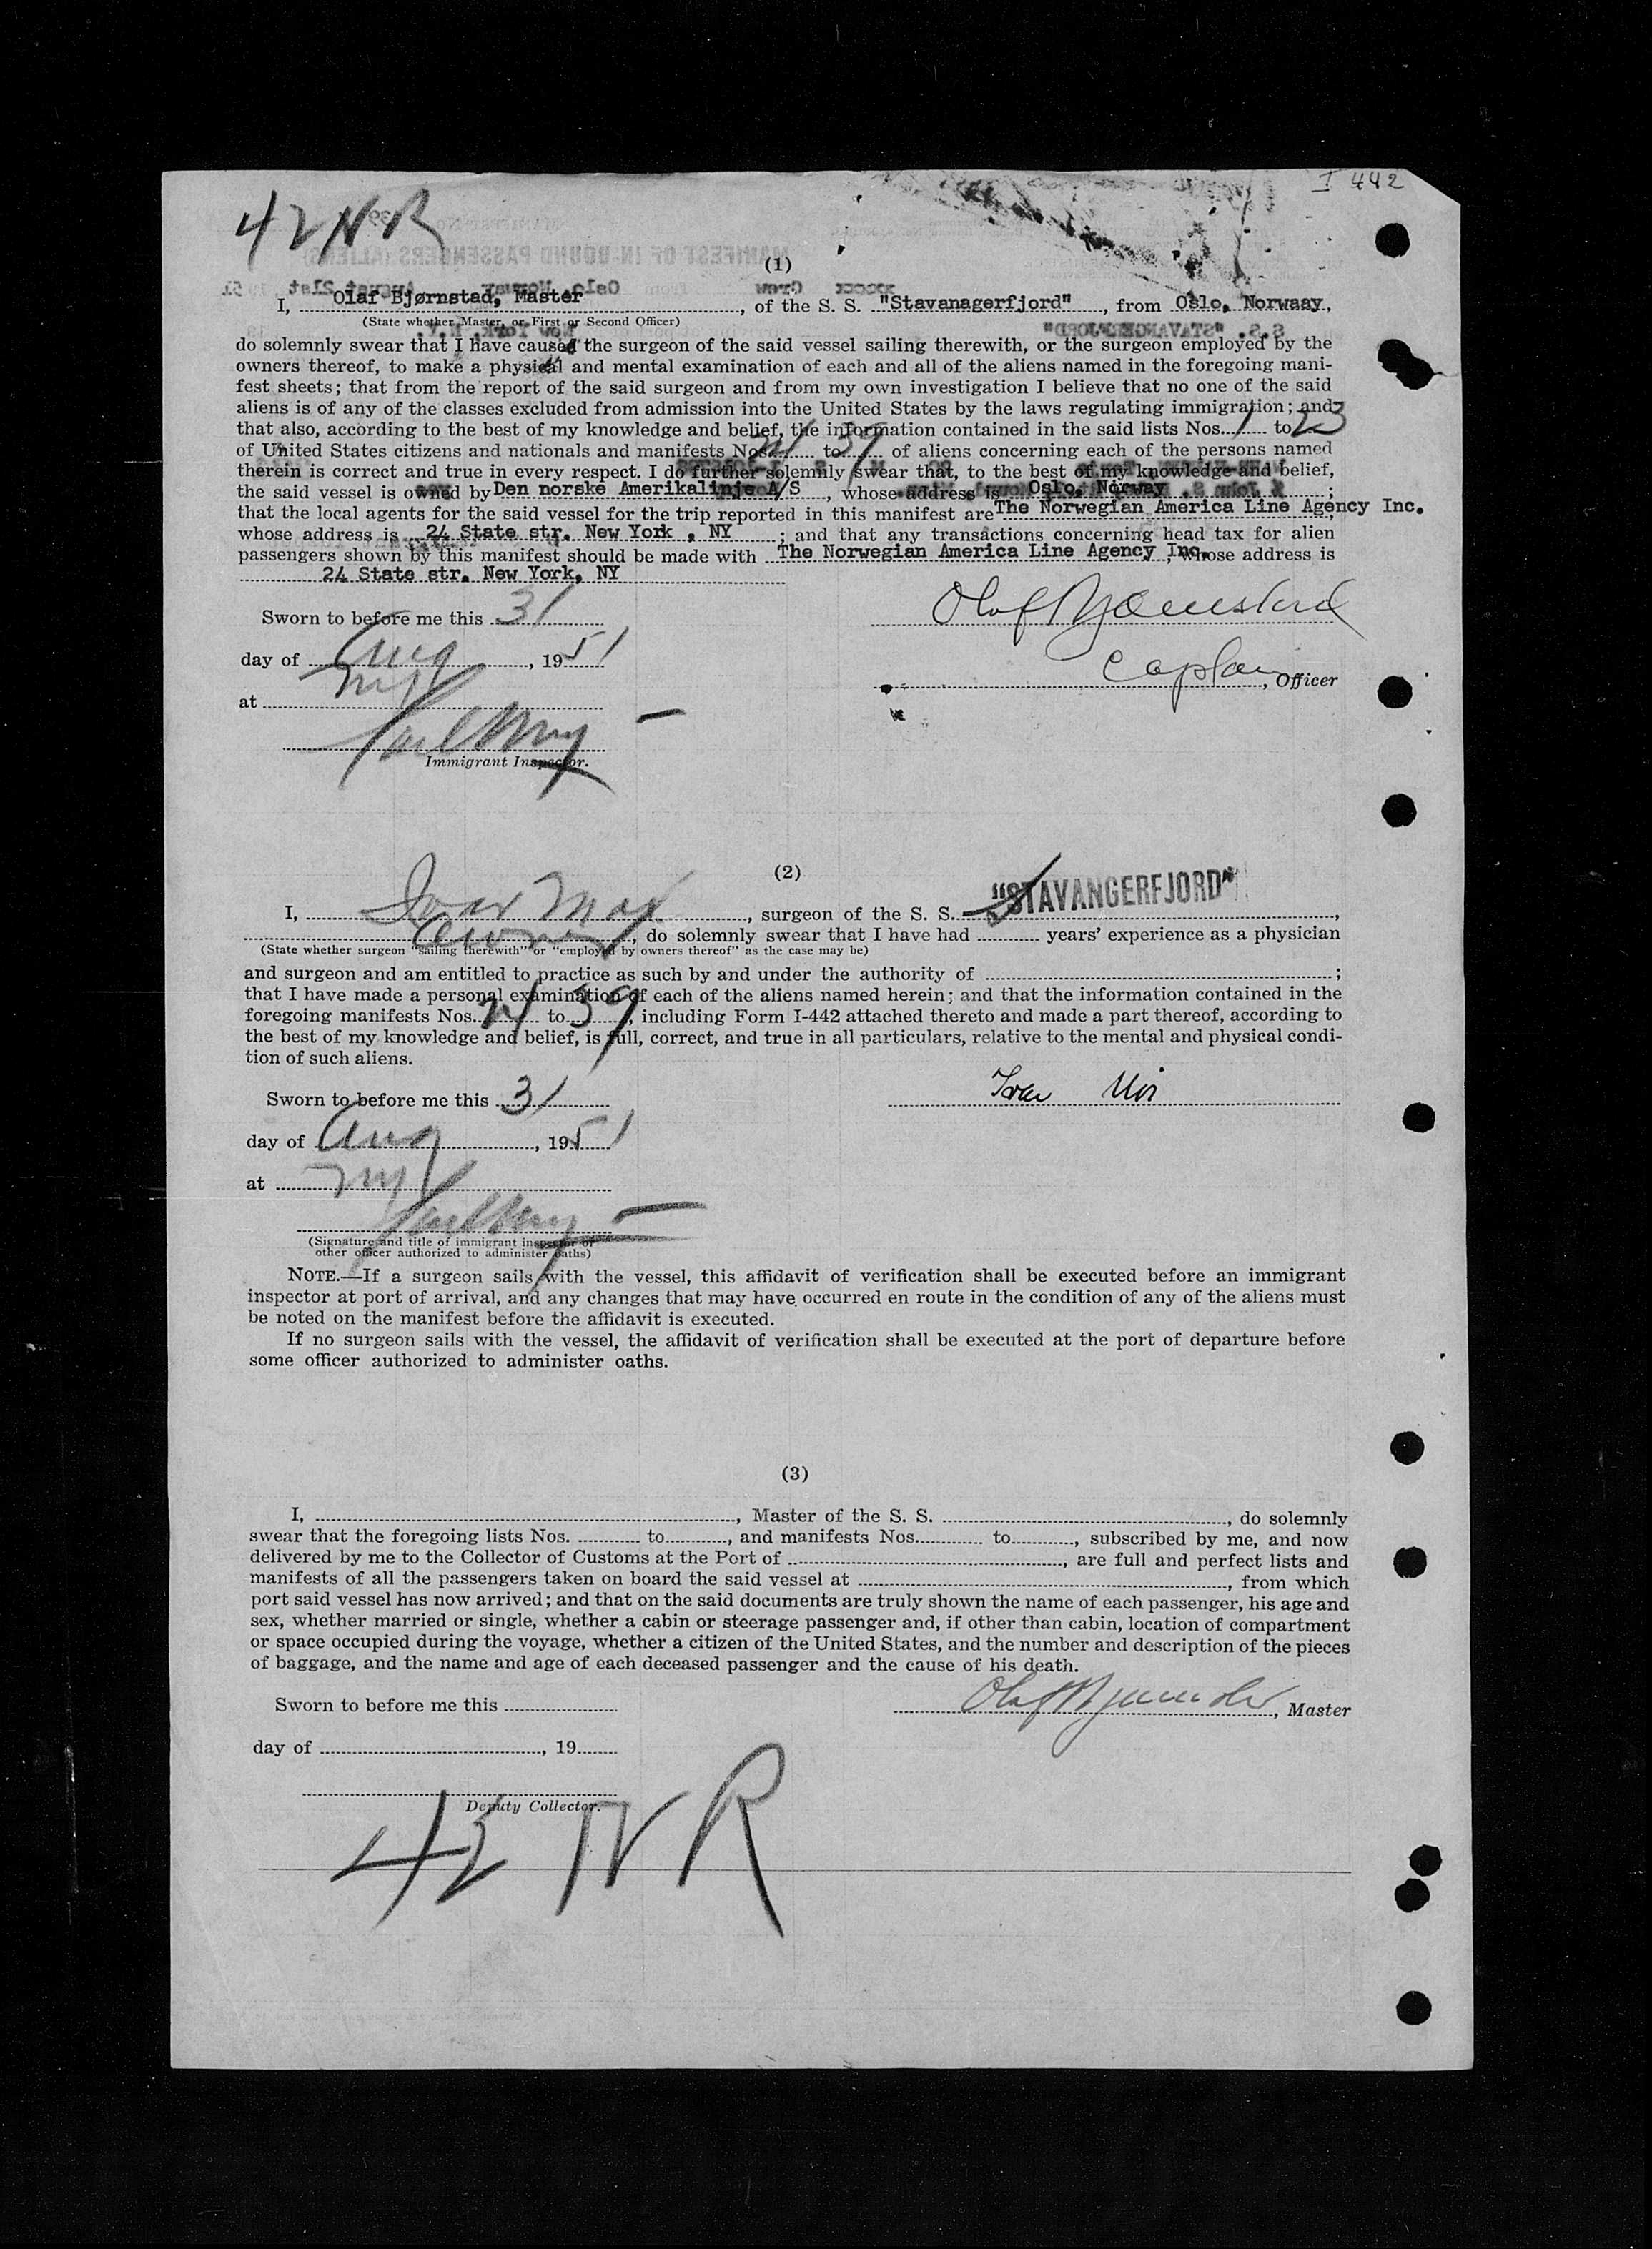 I 442
42 NR
(1)
I, Olaf Bjørnstad, Master, of the S. S. "Stavanagerfjord", from Oslo, Norwaay,
(State whether Master, or First or Second Officer)
do solemnly swear that I have caused the surgeon of the said vessel sailing therewith, or the surgeon employed by the
owners thereof, to make a physical and mental examination of each and all of the aliens named in the foregoing mani-
fest sheets; that from the report of the said surgeon and from my own investigation I believe that no one of the said
aliens is of any of the classes excluded from admission into the United States by the laws regulating immigration; and
that also, according to the best of my knowledge and belief, the information contained in the said lists Nos. 1 to 23
of United States citizens and nationals and manifests Nos. to 39 of aliens concerning each of the persons named
therein is correct and true in every respect. I do further solemnly swear that, to the best of my knowledge and belief,
the said vessel is owned by Den norske Amerikalinje A/S, whose address is Oslo, Norway;
that the local agents for the said vessel for the trip reported in this manifest are The Norwegian America Line Agency Inc.
whose address is 24 State str. New York, NY; and that any transactions concerning head tax for alien
passengers shown by this manifest should be made with The Norwegian America Line Agency Inc., whose address is
24 State str. New York, NY
Sworn to before me this 31
Olaf Bjørnstad
day of Aug, 1951
Captain, Officer
at NY
Immigrant Inspector.
(2)
I, Ivar Moe, surgeon of the S. S. "STAVANGERFJORD",
, do solemnly swear that I have had years' experience as a physician
(State whether surgeon "sailing therewith" or "employed by owners thereof" as the case may be)
and surgeon and am entitled to practice as such by and under the authority of ;
that I have made a personal examination of each of the aliens named herein; and that the information contained in the
foregoing manifests Nos. to 39, including Form I-442 attached thereto and made a part thereof, according to
the best of my knowledge and belief, is full, correct, and true in all particulars, relative to the mental and physical condi-
tion of such aliens.
Sworn to before me this 31
Ivar Moe
day of Aug, 1951
at NY
(Signature and title of immigrant inspector or
other officer authorized to administer oaths)
NOTE.—If a surgeon sails with the vessel, this affidavit of verification shall be executed before an immigrant
inspector at port of arrival, and any changes that may have occurred en route in the condition of any of the aliens must
be noted on the manifest before the affidavit is executed.
If no surgeon sails with the vessel, the affidavit of verification shall be executed at the port of departure before
some officer authorized to administer oaths.
(3)
I, , Master of the S. S. , do solemnly
swear that the foregoing lists Nos. to , and manifests Nos. to , subscribed by me, and now
delivered by me to the Collector of Customs at the Port of , are full and perfect lists and
manifests of all the passengers taken on board the said vessel at , from which
port said vessel has now arrived; and that on the said documents are truly shown the name of each passenger, his age and
sex, whether married or single, whether a cabin or steerage passenger and, if other than cabin, location of compartment
or space occupied during the voyage, whether a citizen of the United States, and the number and description of the pieces
of baggage, and the name and age of each deceased passenger and the cause of his death.
Sworn to before me this
Olaf Bjørnstad, Master
day of , 19
Deputy Collector.
42 NR